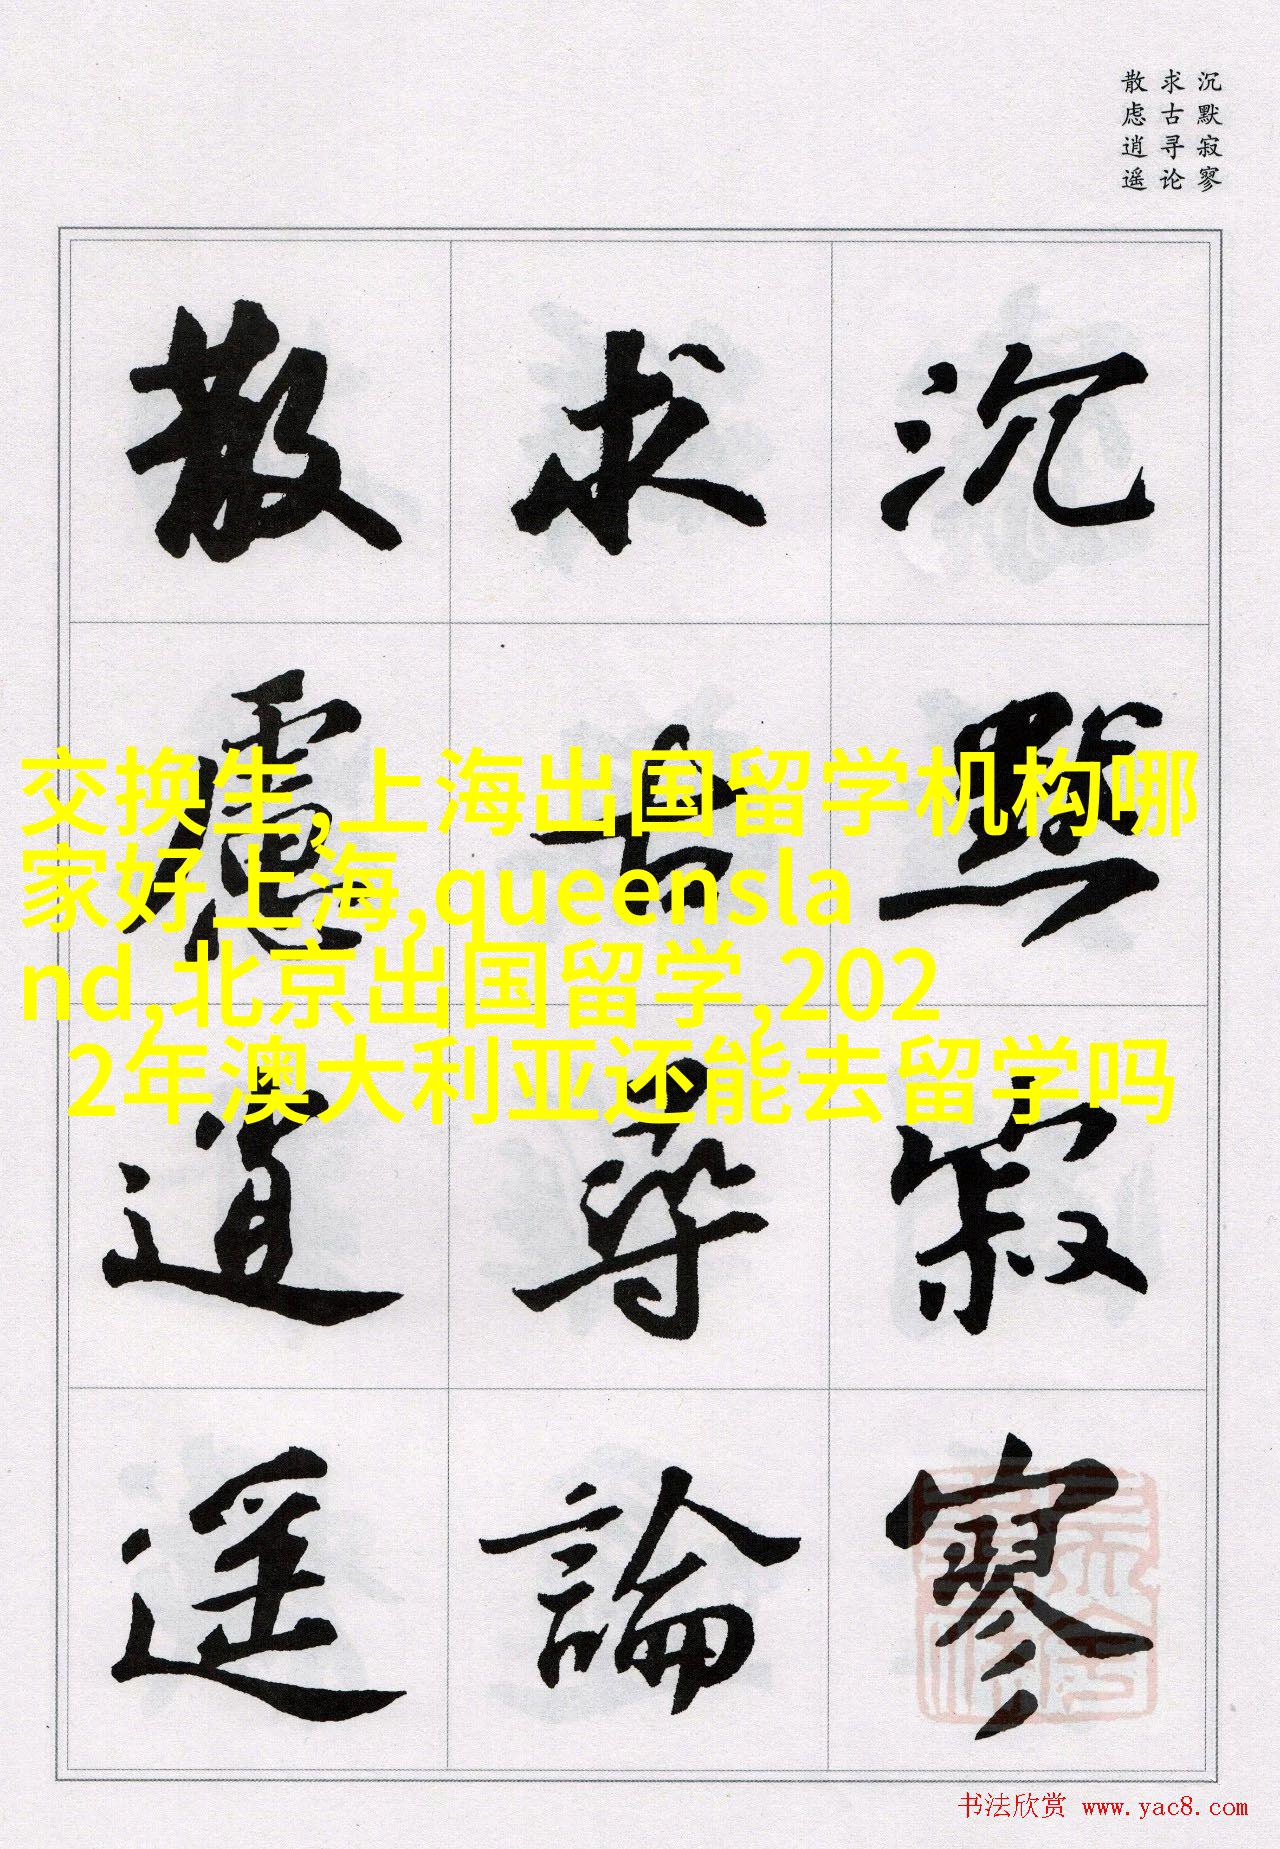 沉默寂寥
求古寻论
散虑逍遥
沉默寂寥
求古尋論
散慮逍遥
交换生,上海出国留学机构哪
家好上海,queensla
nd,北京出国留学,202
2年澳大利亚还能去留学吗
书法欣赏 www.yac8.com